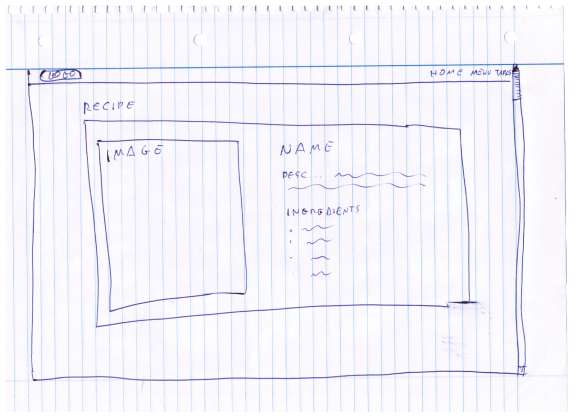 LOGO
HOME MENU TABS
RECIPE
IMAGE
NAME
DESC...
INGREDIENTS